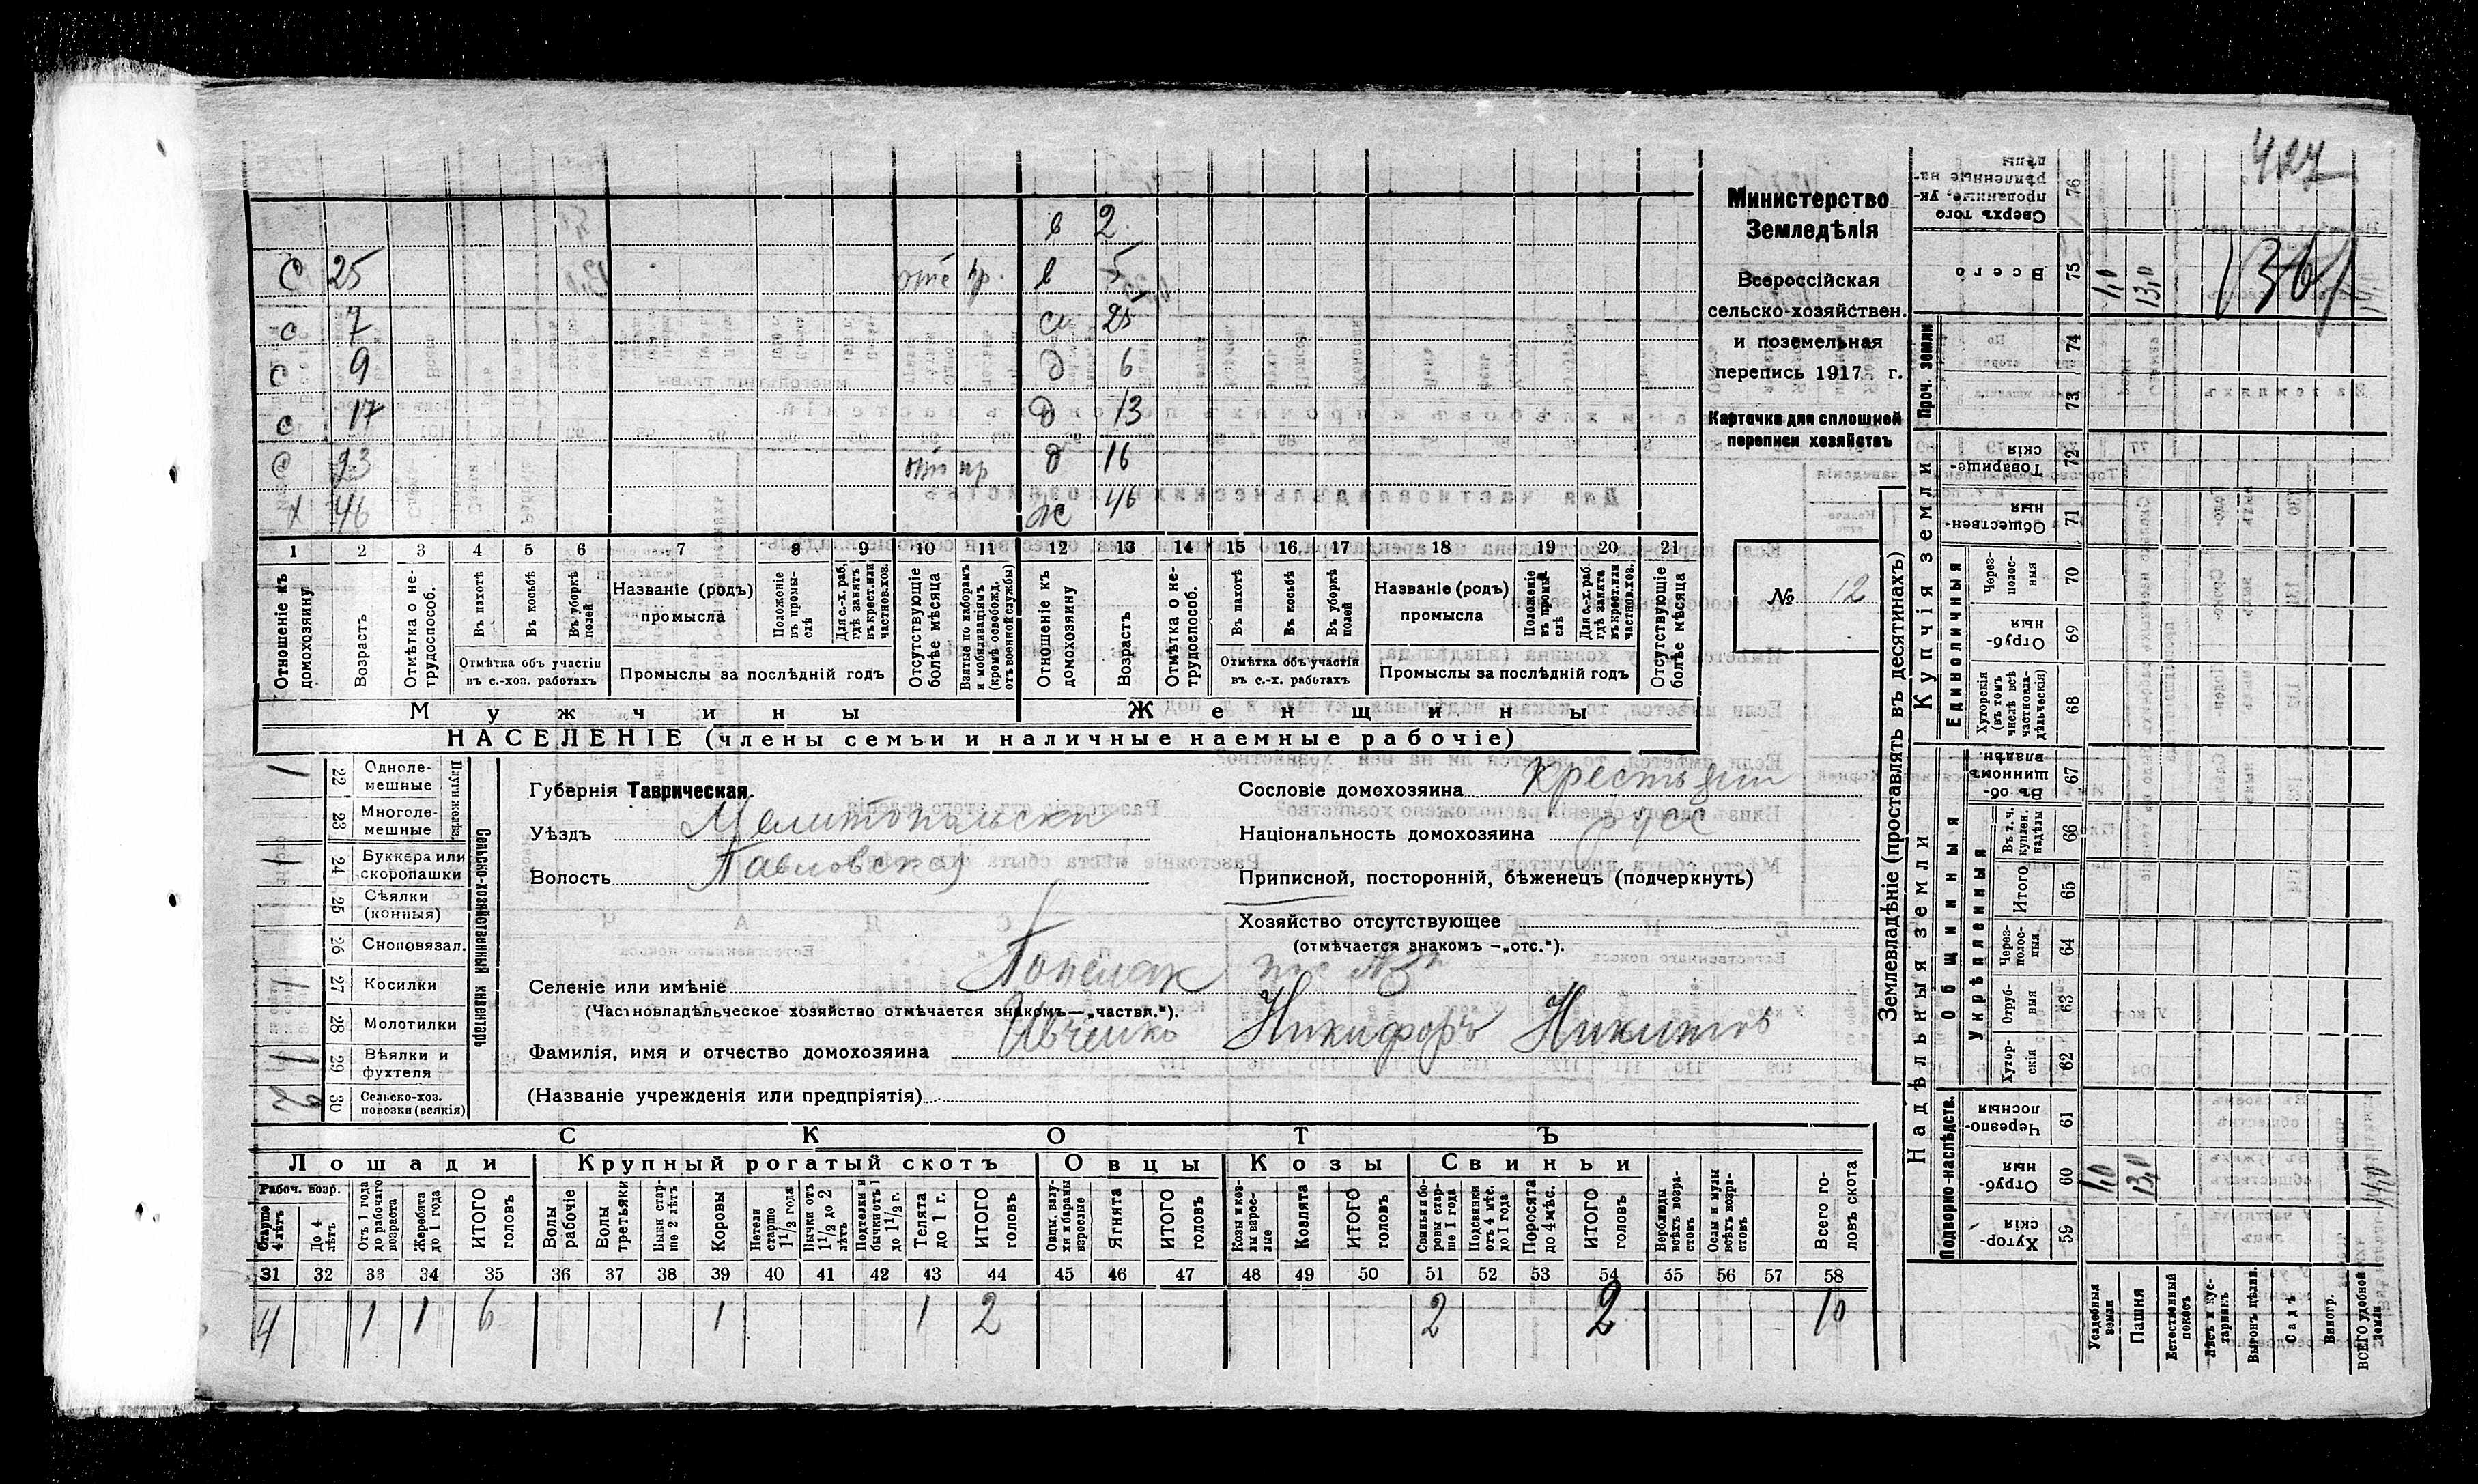 427
Министерство
Земледѣлія
Всероссійская
сельско-хозяйствен.
и поземельная
перепись 1917 г.
Карточка для сплошной
переписи хозяйствъ
№ 12
в 2
С 25 отс пр. в 5
с 7 сн 25
с 9 д 6
с 17 д 13
с 23 отс пр д 16
х 46 ж 46
1 2 3 4 5 6 7 8 9 10 11 12 13 14 15 16 17 18 19 20 21
Отношеніе къ домохозяину
Возрастъ
Отмѣтка о не-трудоспособ.
Въ пахотѣ
Въ косьбѣ
Въ уборкѣ полей
Отмѣтка объ участіи въ с.-хоз. работахъ
Названіе (родъ) промысла
Положеніе въ промы-слѣ
Для с.-х. раб. гдѣ занятъ въ крест. или частнов. хоз.
Промыслы за послѣдній годъ
Отсутствующіе болѣе мѣсяца
Взятые по наборамъ и мобилизаціямъ (кромѣ освобожд. отъ военной службы)
Отношеніе къ домохозяину
Возрастъ
Отмѣтка о не-трудоспособ.
Въ пахотѣ
Въ косьбѣ
Въ уборкѣ полей
Отмѣтка объ участіи въ с.-х. работахъ
Названіе (родъ) промысла
Положеніе въ промы-слѣ
Для с.-х. раб. гдѣ занята въ крест. или частнов. хоз.
Промыслы за послѣдній годъ
Отсутствующіе болѣе мѣсяца
Мужчины Женщины
НАСЕЛЕНІЕ (члены семьи и наличные наемные рабочіе)
Сельско-хозяйственный инвентарь
Плуги желѣз.
22 Одноле-мешные 1
23 Многоле-мешные
24 Буккера или скоропашки 1
25 Сѣялки (конныя)
26 Сноповязал.
27 Косилки 1
28 Молотилки
29 Вѣялки и фухтеля 1
30 Сельско-хоз. повозки (всякія) 2
Губернія Таврическая.
Уѣздъ Мелитопольскій
Волость Павловская
Сословіе домохозяина крестьянин
Національность домохозяина русс
Приписной, посторонній, бѣженецъ (подчеркнуть)
Хозяйство отсутствующее
(отмѣчается знакомъ —„отс.“).
Селеніе или имѣніе
(Частновладѣльческое хозяйство отмѣчается знакомъ—„частвл.“).
Фамилія, имя и отчество домохозяина Ивченко Никифоръ Никитов
(Названіе учрежденія или предпріятія)
СКОТЪ
Лошади Крупный рогатый скотъ Овцы Козы Свиньи
Рабоч. возр.
Старше 4 лѣтъ
До 4 лѣтъ
Отъ 1 года до рабочаго возраста
Жеребята до 1 года
ИТОГО головъ
Волы рабочіе
Волы третьяки
Быки стар-ше 2 лѣтъ
Коровы
Нетели старше 1 1/2 года
Быки отъ 1 1/2 до 2 лѣтъ
Подтелки и бычки отъ 1 до 1 1/2 г.
Телята до 1 г.
ИТОГО головъ
Овцы, валу-хи и бараны взрослые
Ягнята
ИТОГО головъ
Козы и коз-лы взрос-лые
Козлята
ИТОГО головъ
Свиньи и бо-ровы стар-ше 1 года
Подсвинки отъ 4 мѣс. до 1 года
Поросята до 4 мѣс.
ИТОГО головъ
Верблюды всѣхъ возра-стовъ
Ослы и мулы всѣхъ возра-стовъ
Всего го-ловъ скота
31 32 33 34 35 36 37 38 39 40 41 42 43 44 45 46 47 48 49 50 51 52 53 54 55 56 57 58
4 1 1 6 1 1 2 2 2 10
Землевладѣніе (проставлять въ десятинахъ)
Надѣльныя земли Купчія земли Проч. земли
Подворно-наслѣдств.
Общинныя
Укрѣпленныя
Единоличныя
59 Хутор-скія
60 Отруб-ныя 1,0 13,0
61 Черезпо-лосныя
62 Хутор-скія
63 Отруб-ныя
64 Через-полос-ныя
65 Итого
66 Въ т. ч. куплен. надѣлы
67 Въ об-щинномъ владѣн.
68 Хуторскія (въ томъ числѣ всѣ частновла-дѣльческія)
69 Отруб-ныя
70 Через-полос-ныя
71 Обществен-ныя
72 Товарище-скія
73
74
75 Всего 1,0 13,0
76 Сверхъ того проданные, ук-рѣпленные на-дѣлы
Усадебныя земли
Пашня
Естественный покосъ
Лѣсъ и кус-тарникъ
Выгонъ цѣлин.
Садъ
Виногр.
ВСЕГО удобной земли